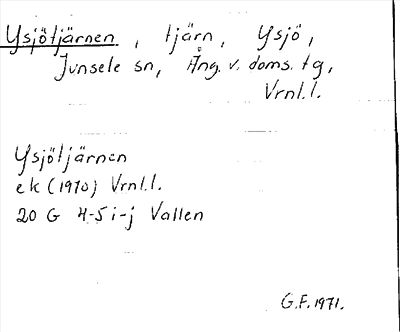 Ysjötjärnen, tjärn, Ysjö,
Junsele sn, Ång. v. doms. tg,
Vrnl.l.
Ysjötjärnen
ek (1970) Vrnl.l.
20 G 4-5 i-j Vallen
G.F. 1971.